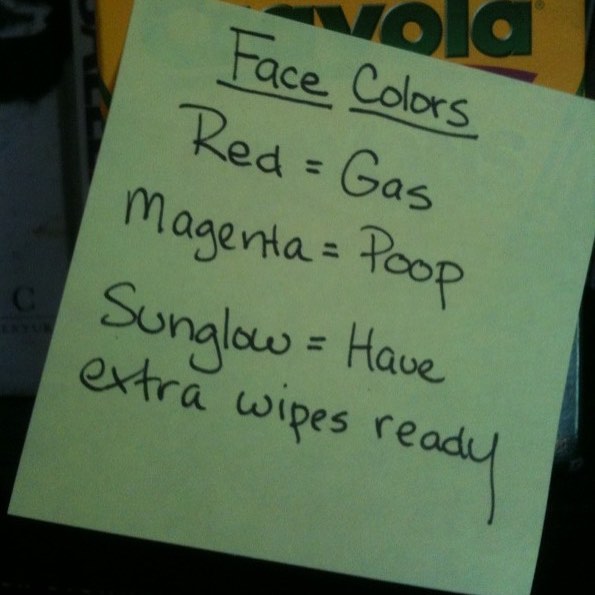 Crayola
Face Colors
Red = Gas
Magenta = Poop
Sunglow = Have
extra wipes ready
C